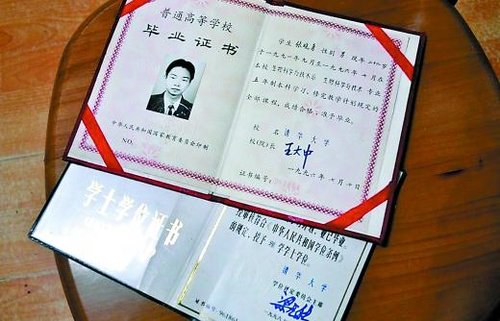 普通高等学校
毕业证书
中华人民共和国国家教育委员会印制
NO.
学生 张晓勇 性别 男 现年 二十一岁
于一九九一年九月至一九九六年 七月在
本校 生物科学与技术系 生物科学与技术 专业
五年制本科学习,修完教学计划规定的
全部课程,成绩合格,准予毕业。
校 名 清华大学
校(院)长 王大中
证书编号:
一九九六年 七月 十日
学士学位证书
《中华人民共和国学位条例》
的规定,授予 理 学学士学位。
清华大学
学位评定委员会主席
证书编号